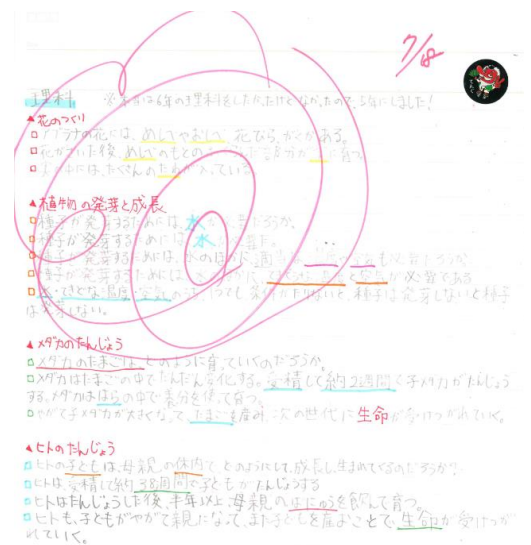 7/8
理科 ※本当は6年の理科をしたかったけどなかったので、5年にしました!
▲花のつくり
アブラナの花には、めしべやおしべ、花びら、がくがある。
花がさいた後、めしべのもとの
実の中には、たくさんのたねが入っている
▲植物の発芽と成長
種子が発芽するためには、水が
種子が発芽するためには、水が
種子が発芽するためには、水のほかに適当な も必要だろうか。
種子が発芽するためには、 が必要である
水・てきとうな温度・空気の 1つでも条件がたりないと、種子は発芽しないと種子
は発芽しない。
▲メダカのたんじょう
メダカのたまごは、どのように育っていくのだろうか。
メダカはたまごの中でだんだん変化する。受精して約2週間で子メダカがたんじょう
する。メダカははらの中で養分を使って育つ。
やがて子メダカが大きくなって、たまごを産み、次の世代に生命が受けつがれていく。
▲ヒトのたんじょう
ヒトの子どもは、母親の体内で、どのようにして、成長し生まれてくるのだろうか?
ヒトは、受精して約38週間で子どもがたんじょうする
ヒトはたんじょうした後、半年以上、母親のはにゅうを飲んで育つ。
ヒトも、子どもがやがて親になって、また子どもを産むことで、生命が受けつが
れていく。